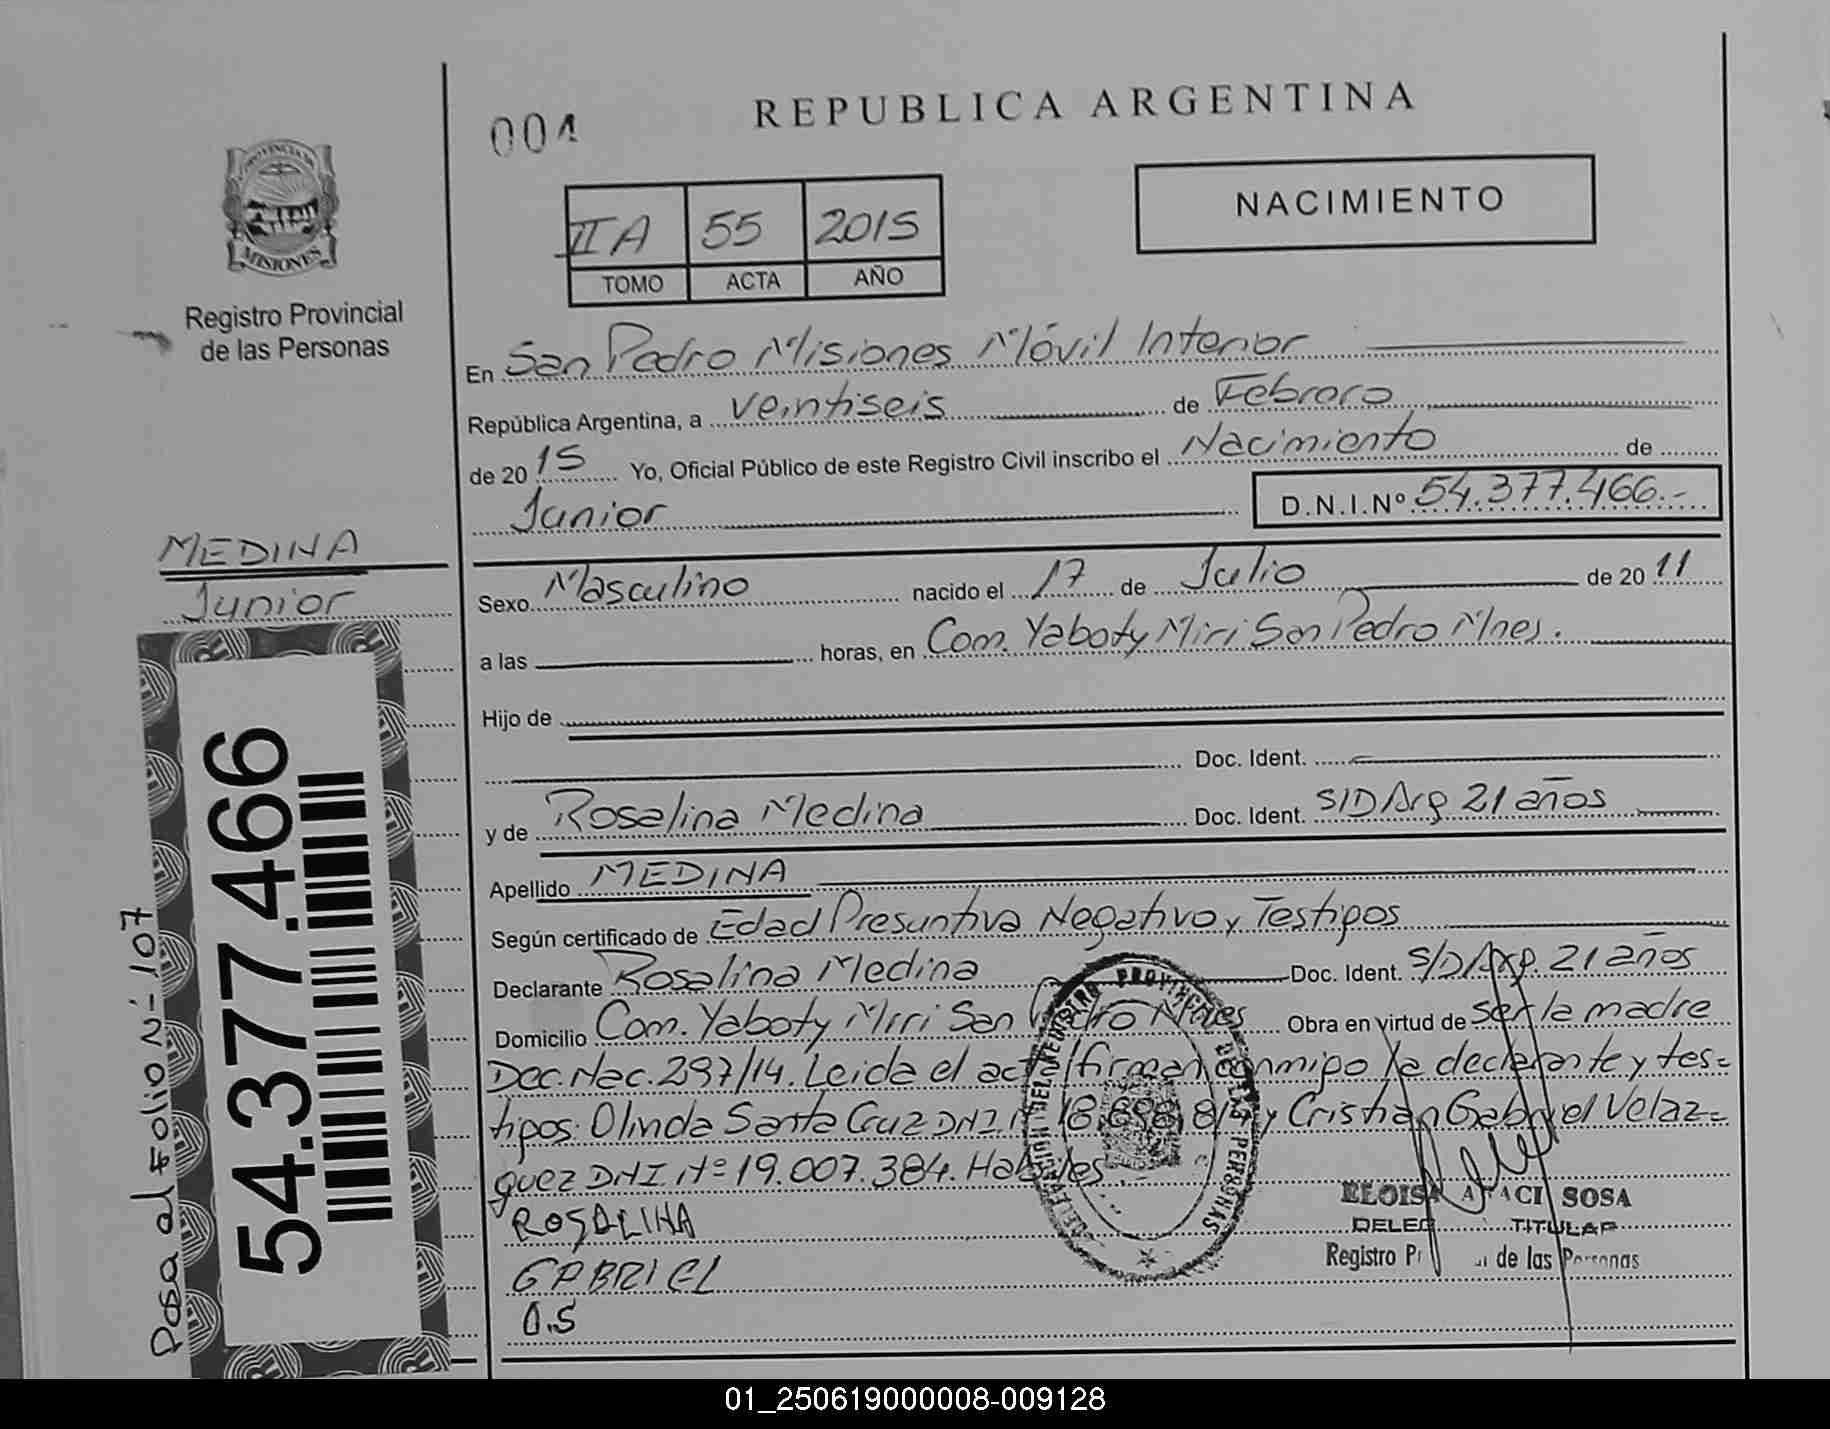 004
REPUBLICA ARGENTINA
PROVINCIA DE
MISIONES
Registro Provincial
de las Personas
IIA 55 2015
TOMO ACTA AÑO
NACIMIENTO
En San Pedro Misiones Móvil Interior
República Argentina, a veintiseis de Febrero
de 2015 Yo, Oficial Público de este Registro Civil inscribo el Nacimiento de
Junior
D.N.I.Nº 54.377.466.-
MEDINA
Junior
Sexo Masculino nacido el 17 de Julio de 2011
a las horas, en Com. Yaboty Miri San Pedro Mnes.
Hijo de
Doc. Ident.
y de Rosalina Medina Doc. Ident. S/D Arg 21 años
Apellido MEDINA
Según certificado de Edad Presuntiva Negativo y Testigos
Declarante Rosalina Medina Doc. Ident. S/D Arg. 21 años
Domicilio Com. Yaboty Miri San Pedro Mnes Obra en virtud de ser la madre
Dec. Nac. 297/14. Leida el acta firman conmigo la declarante y tes=
tigos: Olinda Santa Cruz DNI Nº y Cristian Gabriel Velaz=
quez DNI Nº 19.007.384. Habiles
ROSALINA
GABRIEL
O.S
DELEGACION DEL REGISTRO PROVINCIAL DE LAS PERSONAS
ELOISA ARACI SOSA
TITULAR
Registro de las Personas
54.377.466
Pasa al Folio Nº 107
01_250619000008-009128